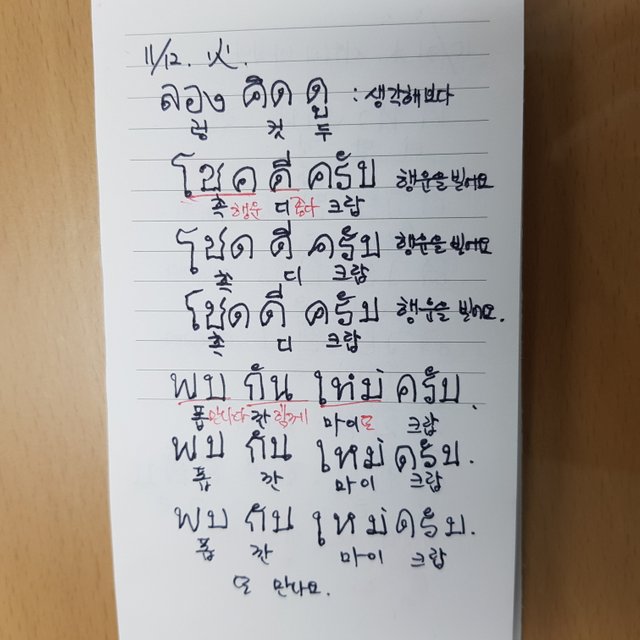 11/12. 火.
ลอง คิด ดู : 생각해보다
렁 컷 두
โชค ดี ครับ 행운을 빌어요
촉 행운 디 좋다 크랍
โชด ดี ครับ 행운을 빌어요
촉 디 크랍
โชด ดี ครับ 행운을 빌어요.
촉 디 크랍
พบ กัน ใหม่ ครับ.
폽 만나다 깐 함께 마이 또 크랍
พบ กัน ใหม่ ครับ.
폽 깐 마이 크랍
พบ กัน ใหม่ ครับ.
폽 깐 마이 크랍
또 만나요.